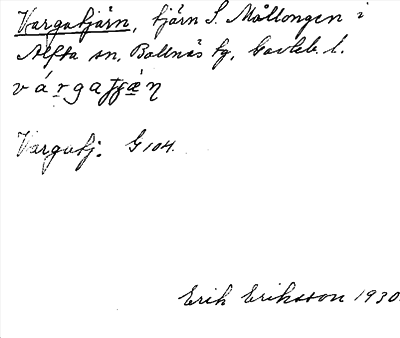 Vargatjärn, tjärn S. Mållongen i
Alfta sn, Bollnäs fg, Gävleb. l.
Vargatj. G 104.
Erik Eriksson 1930.